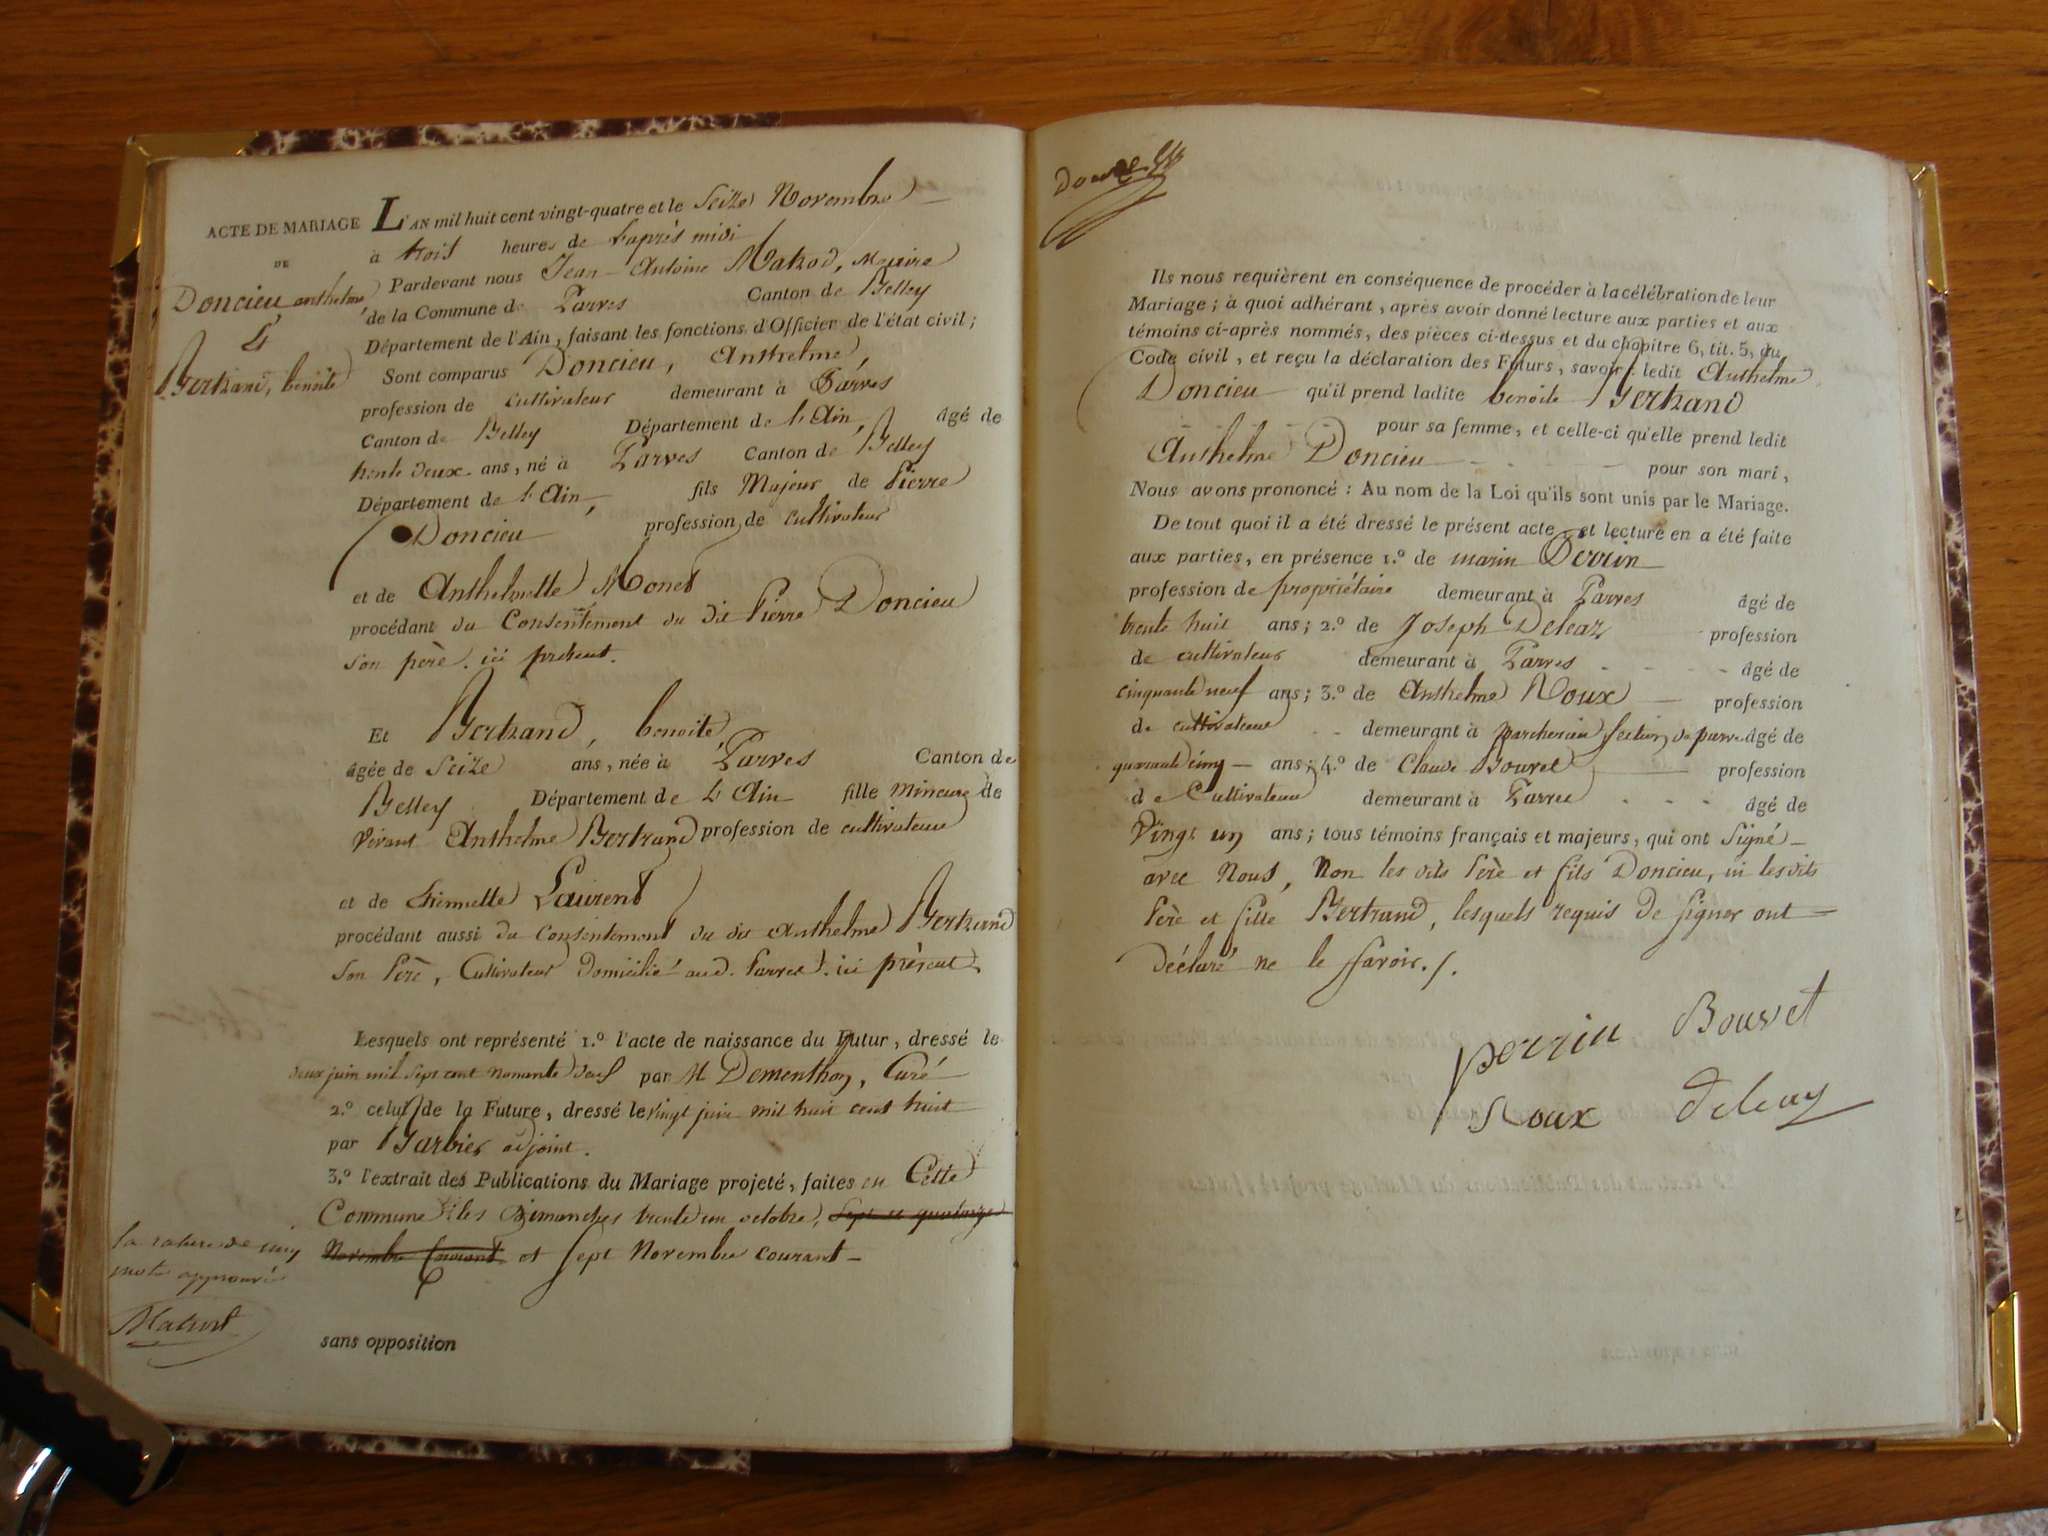 ACTE DE MARIAGE
DE
Doncieu anthelme
Et
Bertrand, benoite
L'AN mil huit cent vingt-quatre et le Seize Novembre
à trois heures de l'après midi
Pardevant nous Jean-Antoine Maire
de la Commune de Parves Canton de Belley
Département de l'Ain, faisant les fonctions d'Officier de l'état civil;
Sont comparus Doncieu, Anthelme,
profession de cultivateur demeurant à Parves
Canton de Belley Département de l'Ain, âgé de
trente deux ans, né à Parves Canton de Belley
Département de l'Ain, fils Majeur de Pierre
Doncieu profession de cultivateur
et de Anthelmette Monet
procédant du Consentement du dit Pierre Doncieu
son père ici présent.
Et Bertrand, benoite,
âgée de Seize ans, née à Parves Canton de
Belley Département de L'Ain fille Mineure de
vivant Anthelme Bertrand profession de cultivateur
et de Laurent
procédant aussi du Consentement du dit Anthelme Bertrand
Son Père, Cultivateur domicilié aud. Parves. ici présent
Lesquels ont représenté 1.º l'acte de naissance du Futur, dressé le
deux juin mil sept cent nonante deux par M Dementhon, Curé
2.º celui de la Future, dressé le vingt juin mil huit cent huit
par Barbier adjoint.
3.º l'extrait des Publications du Mariage projeté, faites en Cette
Commune les Dimanches trente un octobre, sept et quatorze
Novembre Courant et sept Novembre courant
sans opposition
la rature de cinq
mots approuvée
douze
Ils nous requièrent en conséquence de procéder à la célébration de leur
Mariage; à quoi adhérant, après avoir donné lecture aux parties et aux
témoins ci-après nommés, des pièces ci-dessus et du chapitre 6, tit. 5, du
Code civil, et reçu la déclaration des Futurs, savoir: ledit Anthelme
Doncieu qu'il prend ladite benoite Bertrand
pour sa femme, et celle-ci qu'elle prend ledit
Anthelme Doncieu pour son mari,
Nous avons prononcé: Au nom de la Loi qu'ils sont unis par le Mariage.
De tout quoi il a été dressé le présent acte, et lecture en a été faite
aux parties, en présence 1.º de marin Perrin
profession de propriétaire demeurant à Parves âgé de
trente huit ans; 2.º de Joseph Deleaz profession
de cultivateur demeurant à Parves âgé de
cinquante neuf ans; 3.º de Anthelme Roux profession
de cultivateur demeurant à section de parves âgé de
quarante cinq ans; 4.º de Claude Bouvet profession
de Cultivateur demeurant à Parves âgé de
Vingt un ans; tous témoins français et majeurs, qui ont signé
avec Nous, Non les dits Père et fils Doncieu, ni lesdits
Père et fille Bertrand, lesquels requis de signer ont
Déclaré ne le savoir.
Perrin Bouvet
Roux Deleaz